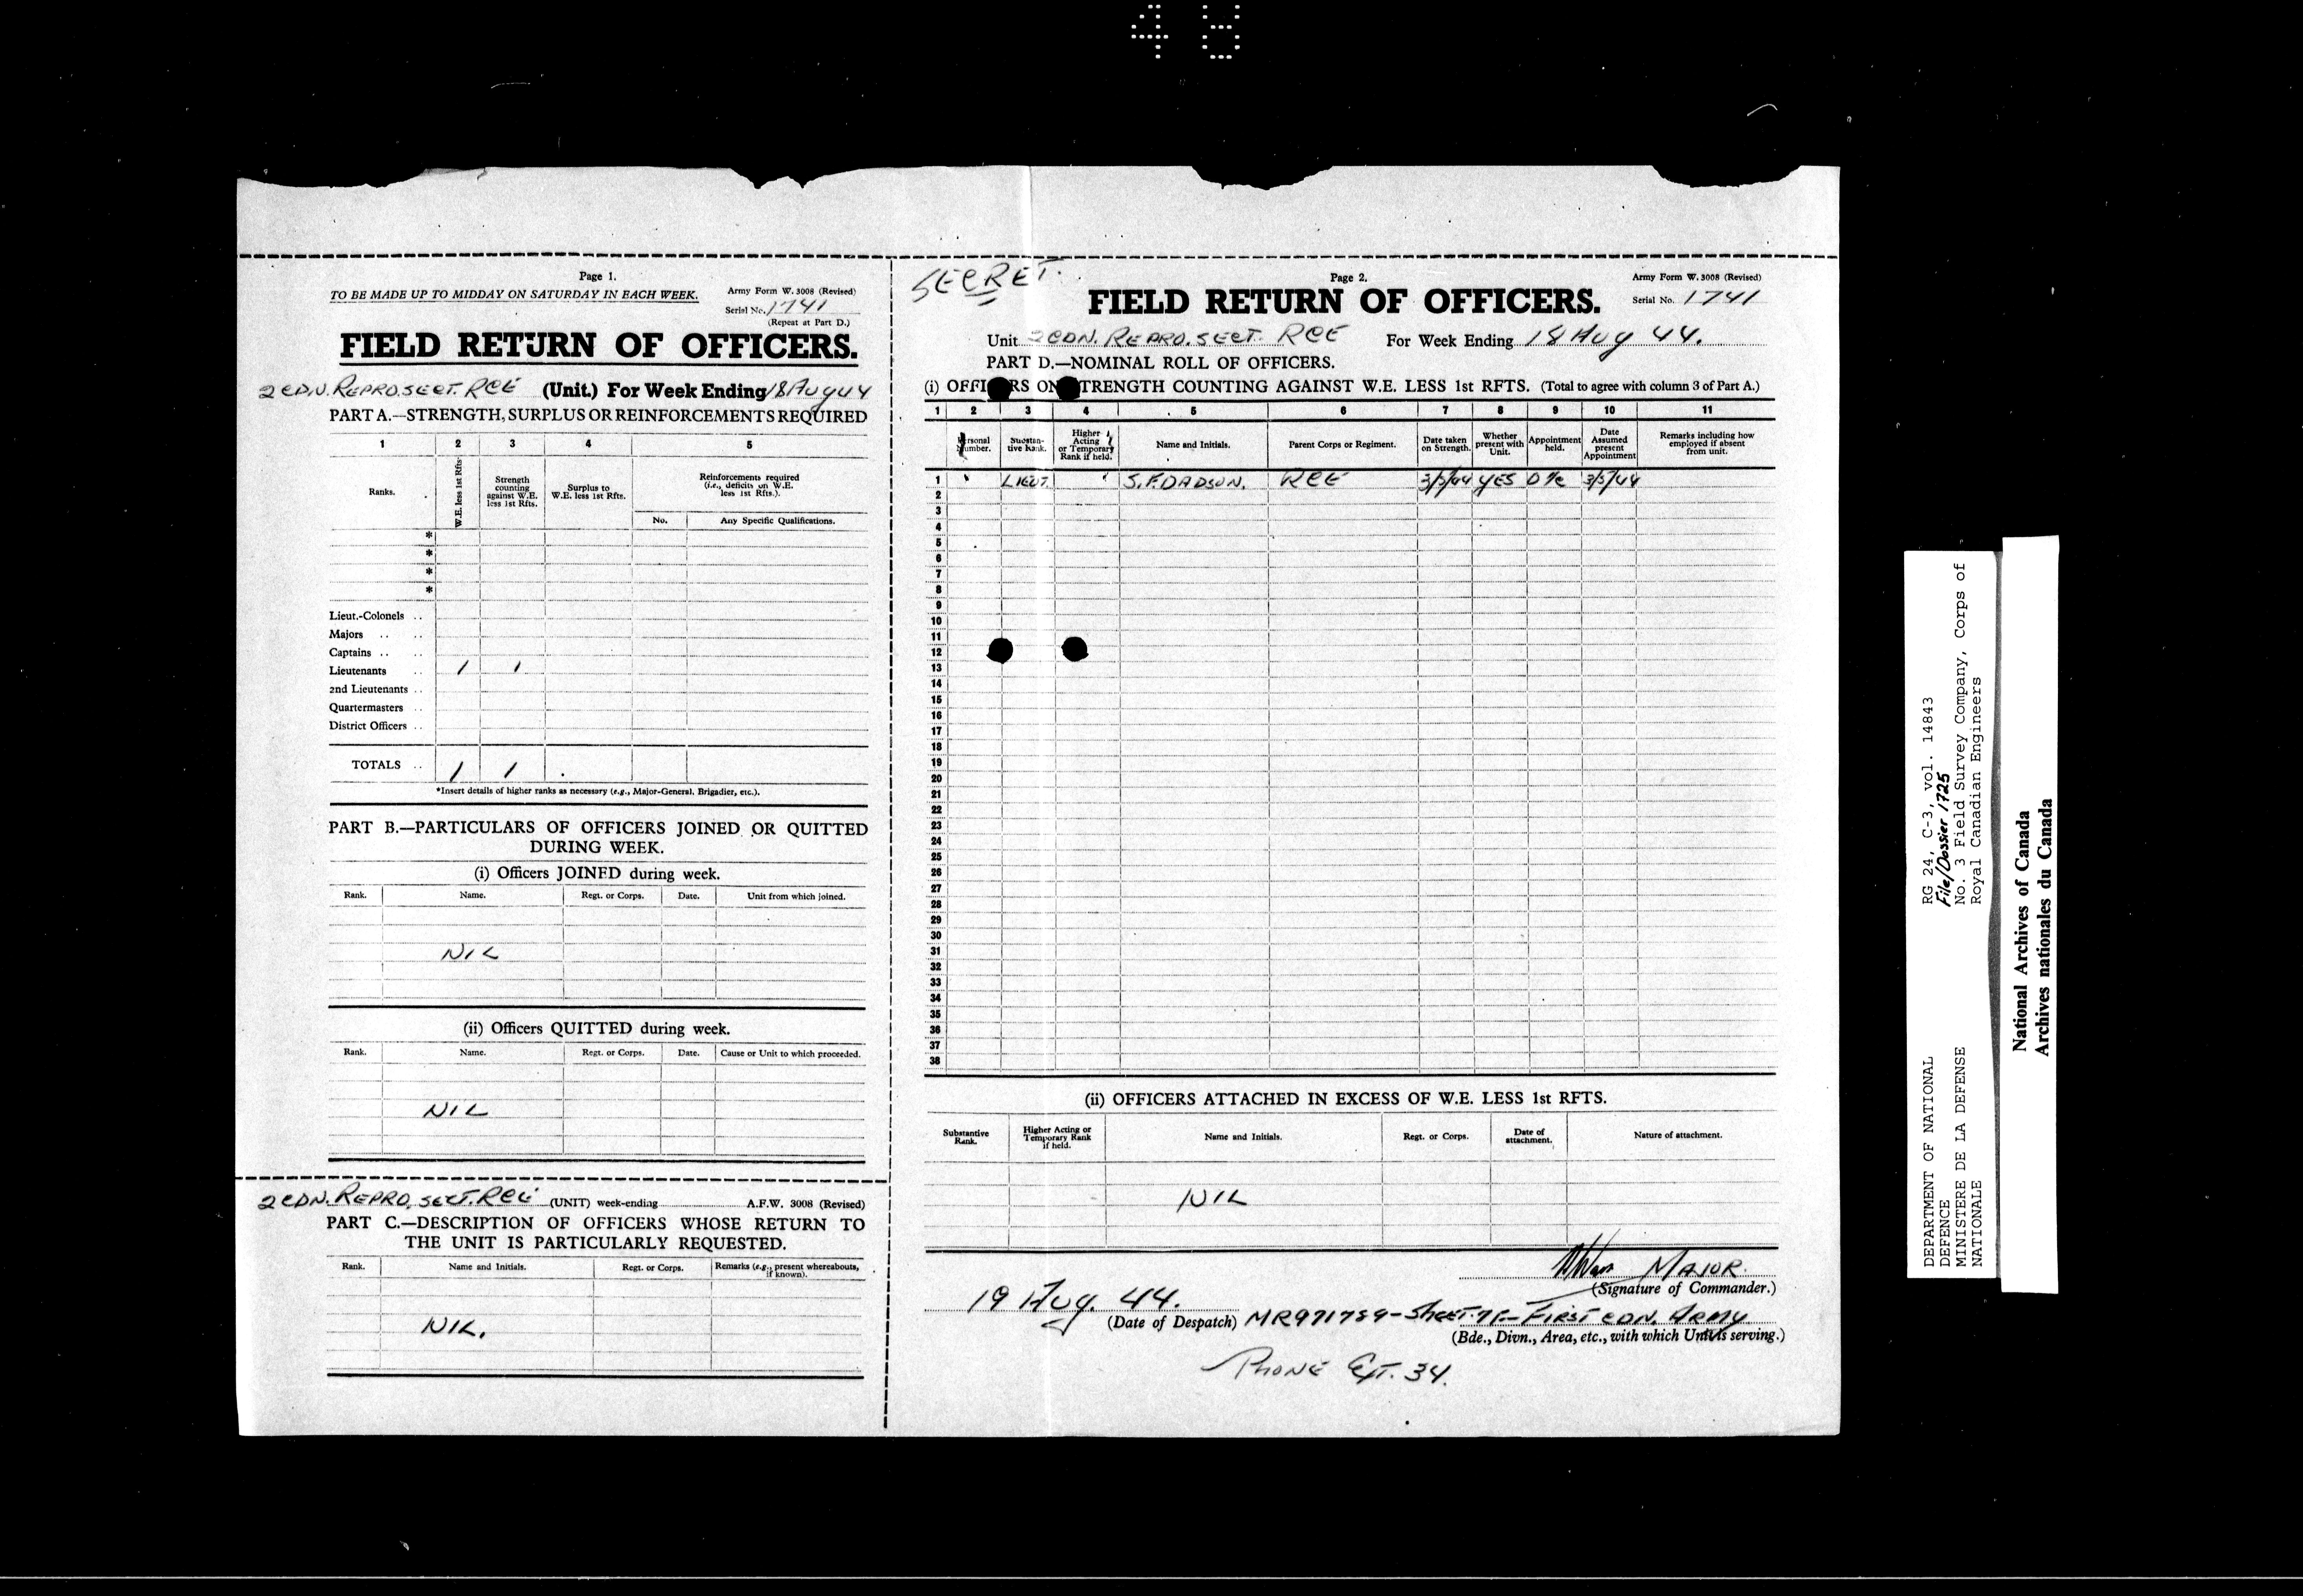 48
Page 1.
TO BE MADE UP TO MIDDAY ON SATURDAY IN EACH WEEK.
Army Form W. 3008 (Revised)
Serial No. 1741
(Repeat at Part D.)
FIELD RETURN OF OFFICERS.
2 CDN. REPRO. SECT. RCE (Unit.) For Week Ending 18 Aug 44
PART A.—STRENGTH, SURPLUS OR REINFORCEMENTS REQUIRED
1 2 3 4 5
Ranks.
W.E. less 1st Rfts.
Strength counting against W.E. less 1st Rfts.
Surplus to W.E. less 1st Rfts.
Reinforcements required (i.e., deficits on W.E. less 1st Rfts.).
No. Any Specific Qualifications.
*
*
*
*
Lieut.-Colonels ..
Majors .. ..
Captains .. ..
Lieutenants .. 1 1
2nd Lieutenants ..
Quartermasters ..
District Officers ..
TOTALS .. 1 1
*Insert details of higher ranks as necessary (e.g., Major-General, Brigadier, etc.).
PART B.—PARTICULARS OF OFFICERS JOINED OR QUITTED
DURING WEEK.
(i) Officers JOINED during week.
Rank. Name. Regt. or Corps. Date. Unit from which joined.
NIL
(ii) Officers QUITTED during week.
Rank. Name. Regt. or Corps. Date. Cause or Unit to which proceeded.
NIL
2 CDN. REPRO. SECT. RCE (UNIT) week-ending A.F.W. 3008 (Revised)
PART C.—DESCRIPTION OF OFFICERS WHOSE RETURN TO
THE UNIT IS PARTICULARLY REQUESTED.
Rank. Name and Initials. Regt. or Corps. Remarks (e.g., present whereabouts, if known).
NIL.
SECRET.
Page 2.
Army Form W. 3008 (Revised)
FIELD RETURN OF OFFICERS.
Serial No. 1741
Unit 2 CDN. REPRO. SECT. RCE For Week Ending 18 Aug 44.
PART D.—NOMINAL ROLL OF OFFICERS.
(i) OFFICERS ON STRENGTH COUNTING AGAINST W.E. LESS 1st RFTS. (Total to agree with column 3 of Part A.)
1 2 3 4 5 6 7 8 9 10 11
Personal Number.
Substantive Rank.
Higher Acting or Temporary Rank if held.
Name and Initials.
Parent Corps or Regiment.
Date taken on Strength.
Whether present with Unit.
Appointment held.
Date Assumed present Appointment
Remarks including how employed if absent from unit.
1 LIEUT. S.F. DADSON. RCE 3/5/44 YES O i/c 3/5/44
2
3
4
5
6
7
8
9
10
11
12
13
14
15
16
17
18
19
20
21
22
23
24
25
26
27
28
29
30
31
32
33
34
35
36
37
38
(ii) OFFICERS ATTACHED IN EXCESS OF W.E. LESS 1st RFTS.
Substantive Rank. Higher Acting or Temporary Rank if held. Name and Initials. Regt. or Corps. Date of attachment. Nature of attachment.
NIL
MAJOR.
(Signature of Commander.)
19 Aug. 44.
(Date of Despatch) MR971789 - Sheet 7F - FIRST CDN. ARMY
(Bde., Divn., Area, etc., with which Unit is serving.)
PHONE EXT. 34.
DEPARTMENT OF NATIONAL
DEFENCE
MINISTERE DE LA DEFENSE
NATIONALE
RG 24, C-3, vol. 14843
File/Dossier 1725
No. 3 Field Survey Company, Corps of
Royal Canadian Engineers
National Archives of Canada
Archives nationales du Canada